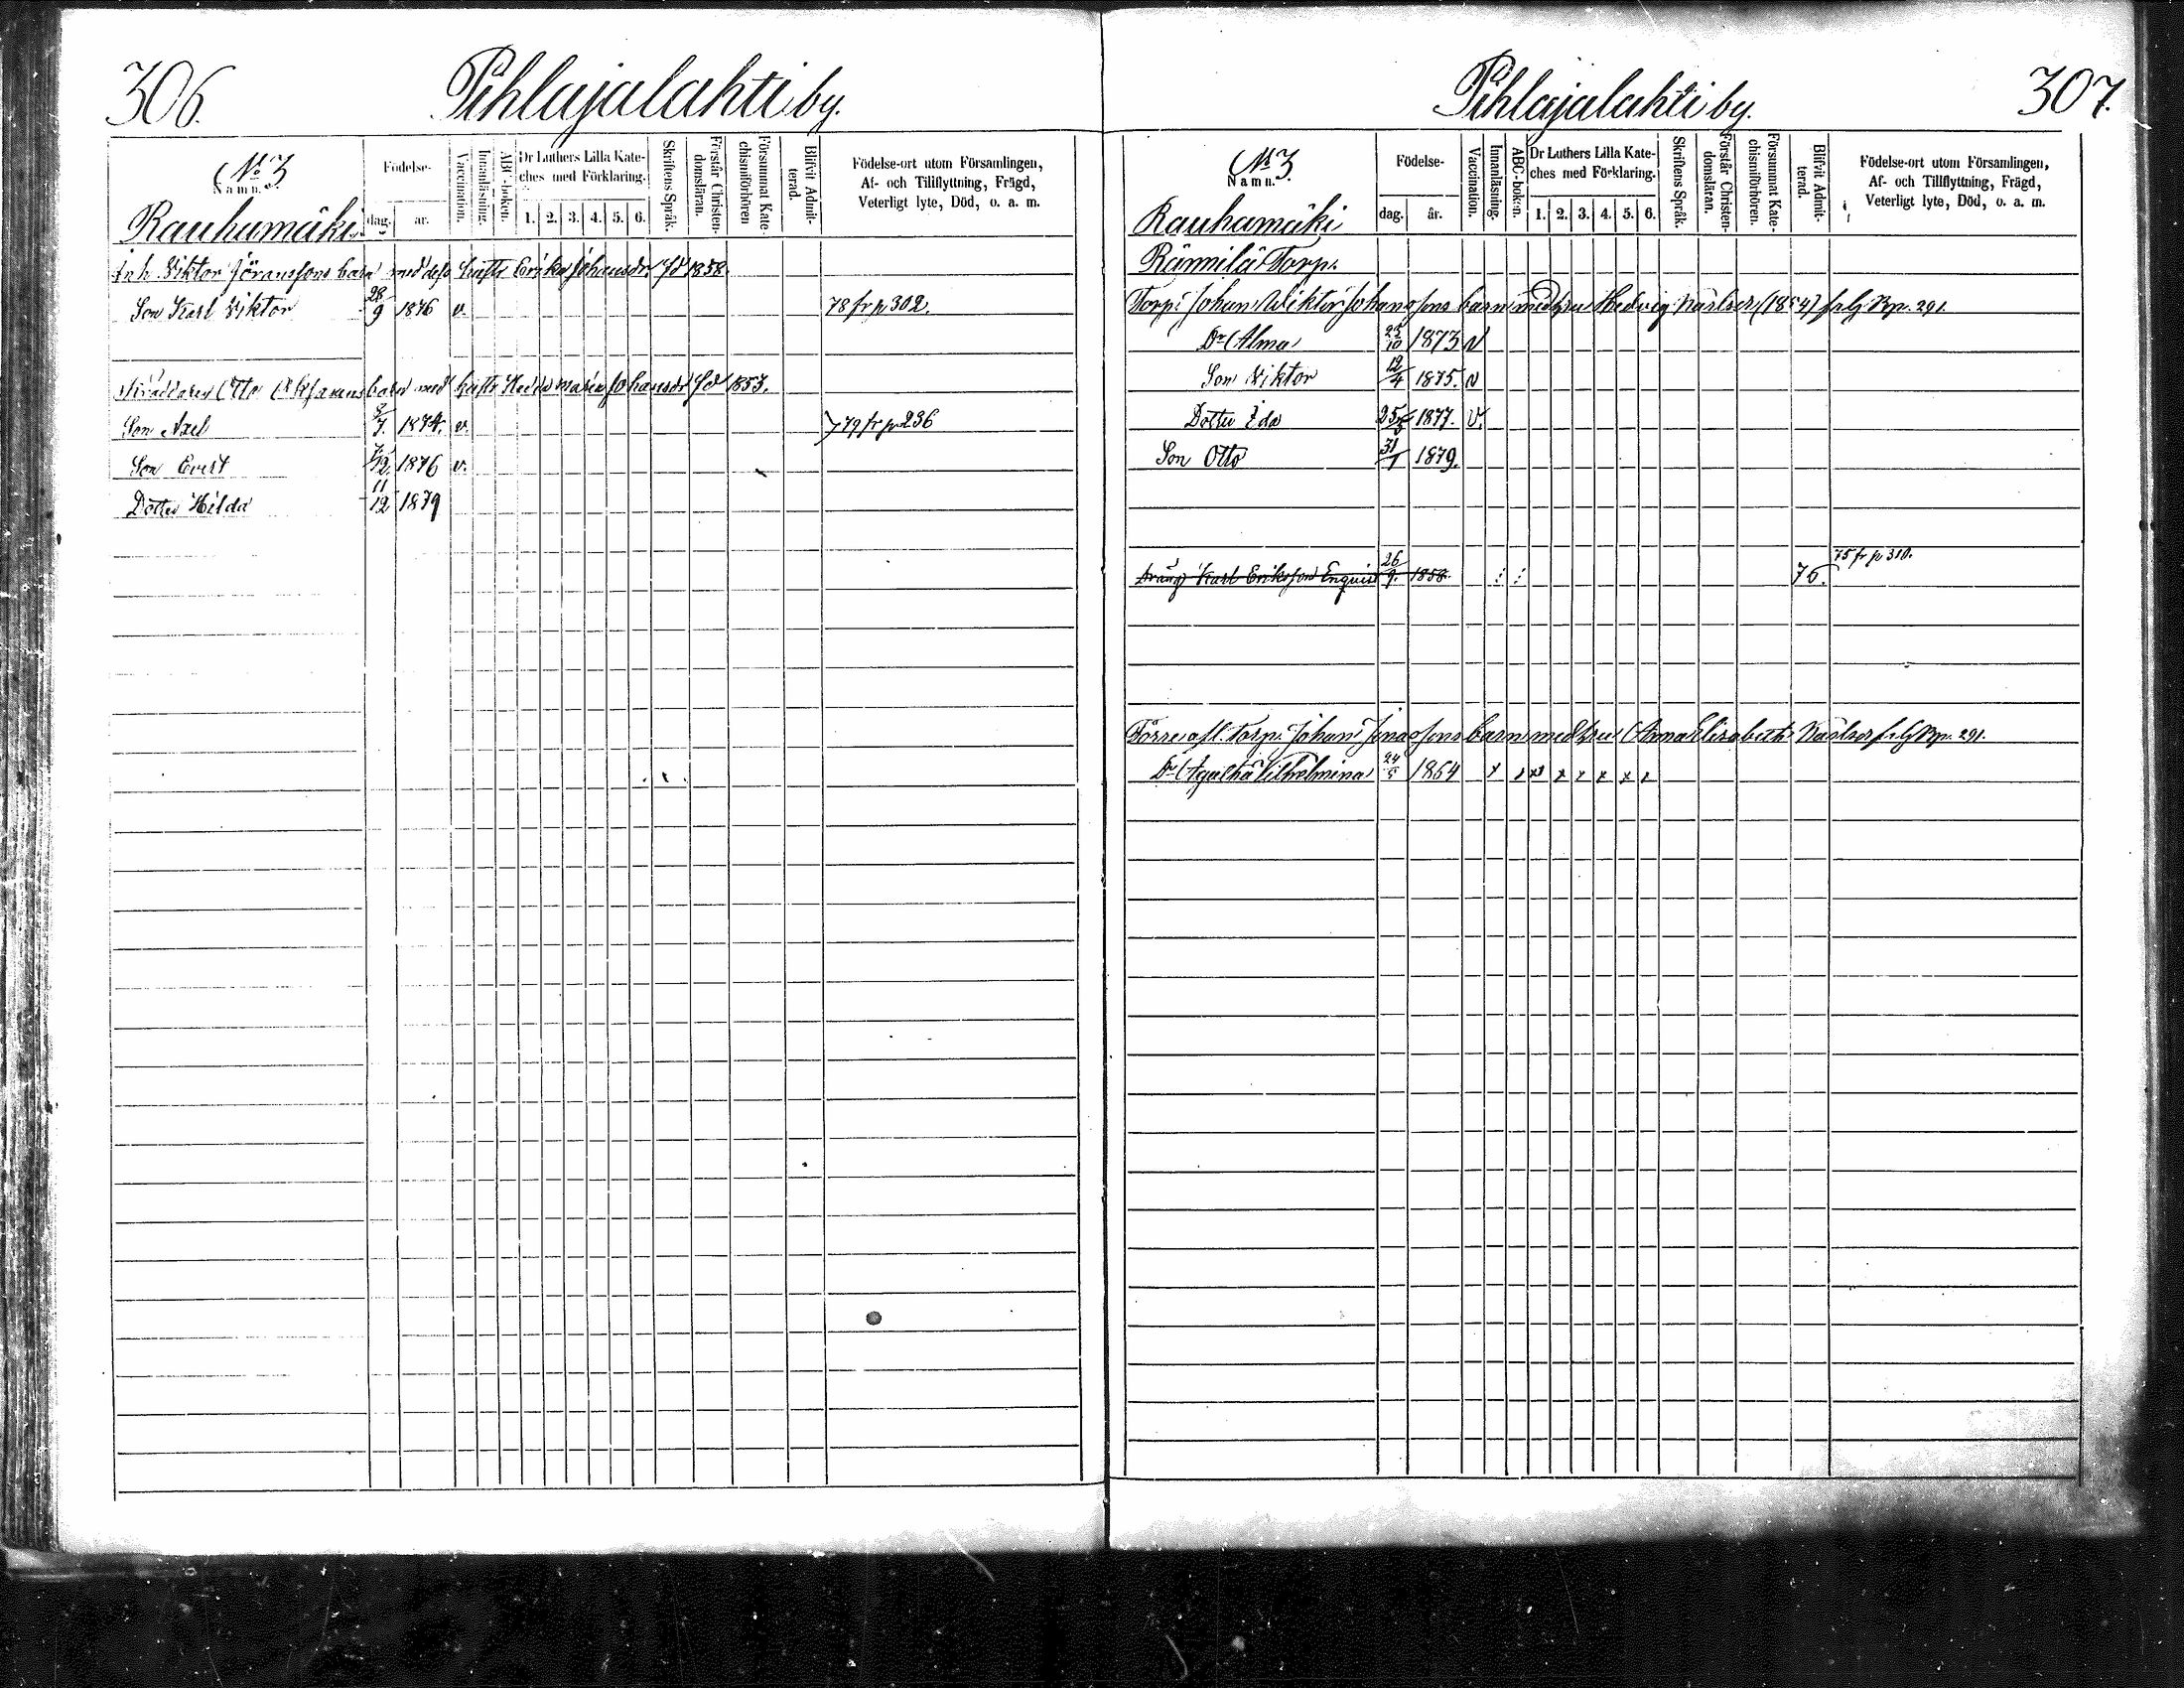 306.
Pihlajalahti by.
No 3
Namn.
Rauhamäki.
Födelse-
dag.
år.
Vaccination.
Innanläsning.
ABC-boken.
Dr Luthers Lilla Kate-
ches med Förklaring.
1. 2. 3. 4. 5. 6.
Skriftens Språk.
Förstår Christen-
domsläran.
Försummat Kate-
chismiförhören
Blifvit Admit-
terad.
Födelse-ort utom Församlingen,
Af- och Tillflyttning, Frägd,
Veterligt lyte, Död, o. a. m.
Inh. Viktor Jöranssons barn med dess hustr Erika Johansdr. fd 1858.
Son Karl Viktor 28/9 1876 v. 78 fr p 302.
Otto barn med hustr Hedda Maria Johansdr fd 1853.
Son Axel 1874. v. 79 fr p 236
Son Evert 1876 v.
Dotter Hilda 11/12 1879
Pihlajalahti by.
307.
No 3.
Namn.
Rauhamäki
Födelse-
dag.
år.
Vaccination.
Innanläsning.
ABC-boken.
Dr Luthers Lilla Kate-
ches med Förklaring.
1. 2. 3. 4. 5. 6.
Skriftens Språk.
Förstår Christen-
domsläran.
Försummat Kate-
chismiförhören.
Blifvit Admit-
terad.
Födelse-ort utom Församlingen,
Af- och Tillflyttning, Frägd,
Veterligt lyte, Död, o. a. m.
Rännilä Torp.
Torp. Johan Wiktor Johanssons barn med hru Hedvig Karlsdr (1854) p. 291.
Dr Alma 25/10 1873 v
Son Viktor 12/4 1875. v
Dotter Ida 1877. v.
Son Otto 31/1 1879.
75 fr p 310.
Dräng Karl Eriksson Enqvist 26/9. 1858. 76.
Förre afl. Torp. Johan Jonassons barn med hru Anna Elisabeth Karlsdr p. 291.
Dr Agatha Vilhelmina 1864 x x x x x x x x